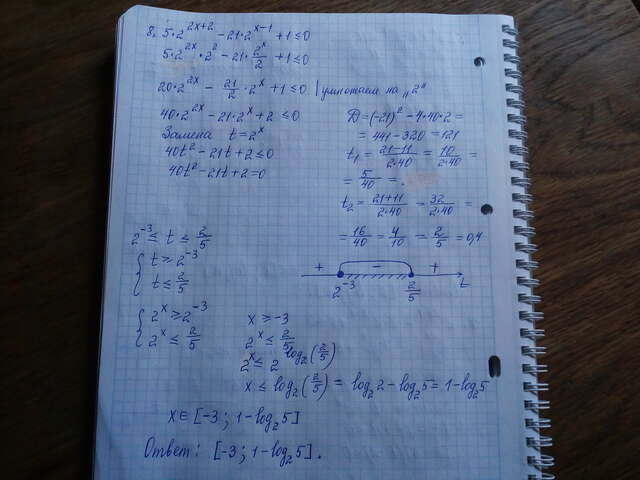 8. 5·2^{2x+2} − 21·2^{x−1} + 1 ≤ 0
5·2^{2x}·2^2 − 21·\frac{2^x}{2} + 1 ≤ 0
20·2^{2x} − \frac{21}{2}·2^x + 1 ≤ 0 | умножаем на „2"
40·2^{2x} − 21·2^x + 2 ≤ 0
Замена t = 2^x
40t^2 − 21t + 2 ≤ 0
40t^2 − 21t + 2 = 0
D = (−21)^2 − 4·40·2 =
= 441 − 320 = 121
t_1 = \frac{21−11}{2·40} = \frac{10}{2·40} =
= \frac{5}{40} = .
t_2 = \frac{21+11}{2·40} = \frac{32}{2·40} =
= \frac{16}{40} = \frac{4}{10} = \frac{2}{5} = 0,4
+ − +
2^{−3} \frac{2}{5} t
2^{−3} ≤ t ≤ \frac{2}{5}
{ t ≥ 2^{−3}
t ≤ \frac{2}{5}
{ 2^x ≥ 2^{−3}
2^x ≤ \frac{2}{5}
x ≥ −3
2^x ≤ \frac{2}{5}
2^x ≤ 2^{log_2(\frac{2}{5})}
x ≤ log_2(\frac{2}{5}) = log_2 2 − log_2 5 = 1 − log_2 5
x ∈ [−3; 1 − log_2 5]
Ответ: [−3; 1 − log_2 5].